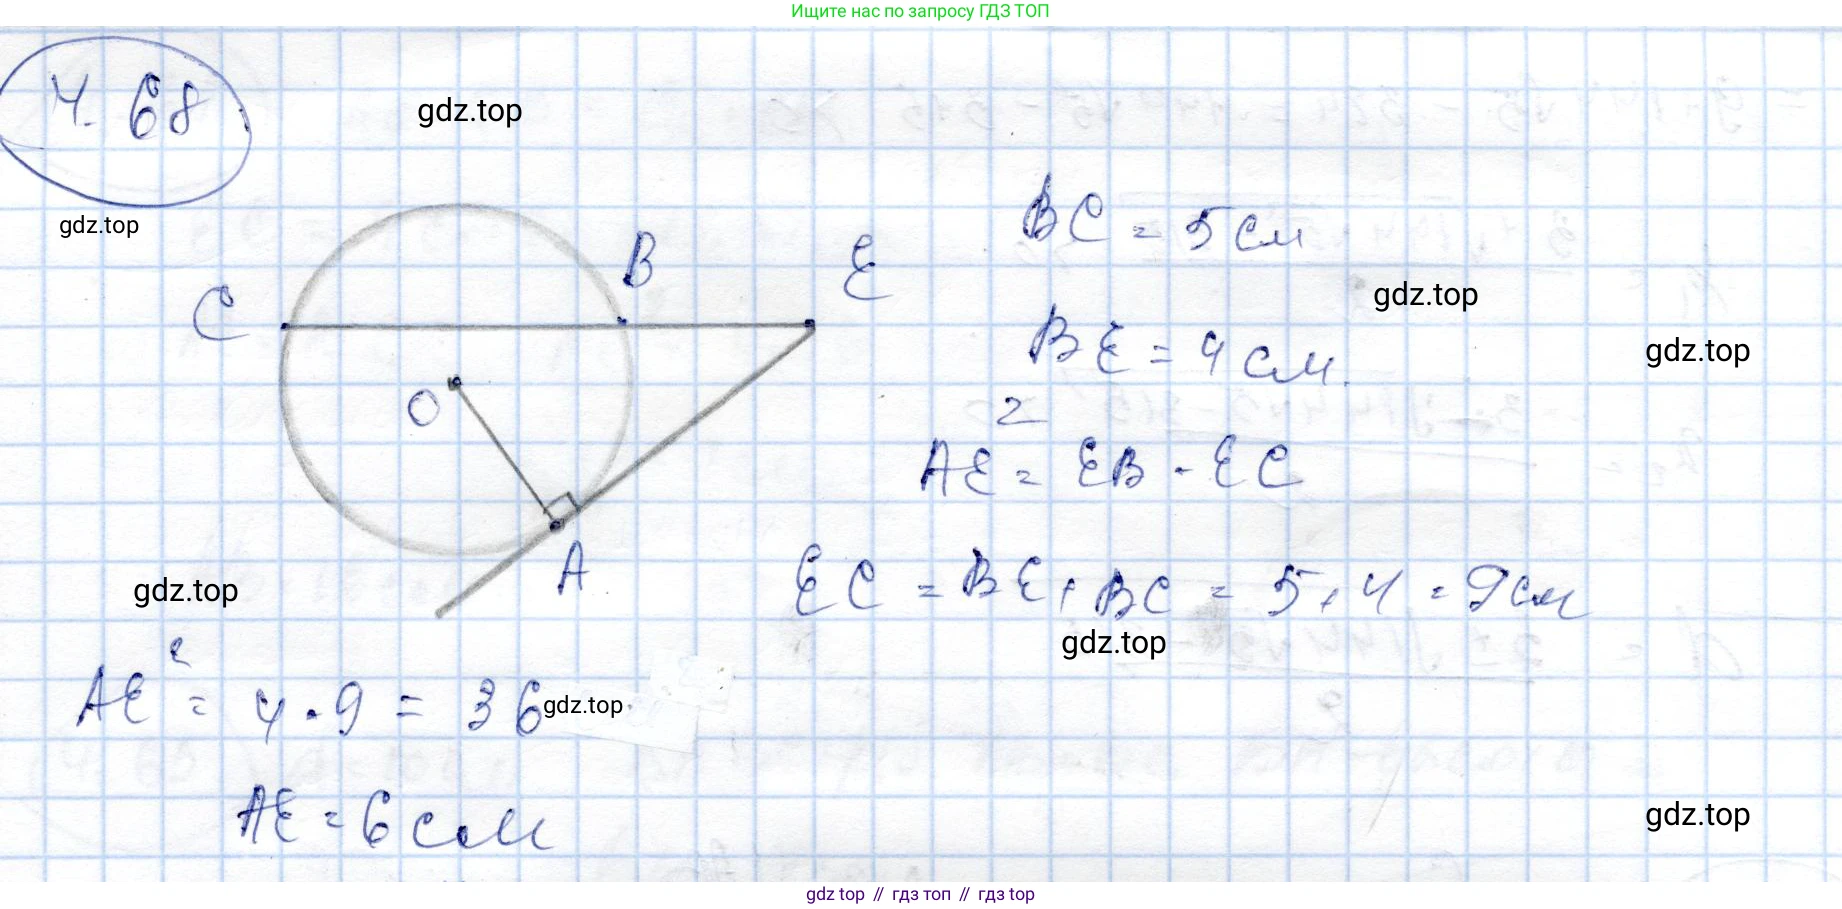 Ищите нас по запросу ГДЗ ТОП
4.68
gdz.top
gdz.top
BC = 5 см
C
B
E
gdz.top
BE = 4 см.
gdz.top
O
AE² = EB · EC
A
EC = BE + BC = 5 + 4 = 9 см
gdz.top
gdz.top
AE² = 4 · 9 = 36
gdz.top
AE = 6 см
gdz.top
gdz top // гдз топ // гдз top